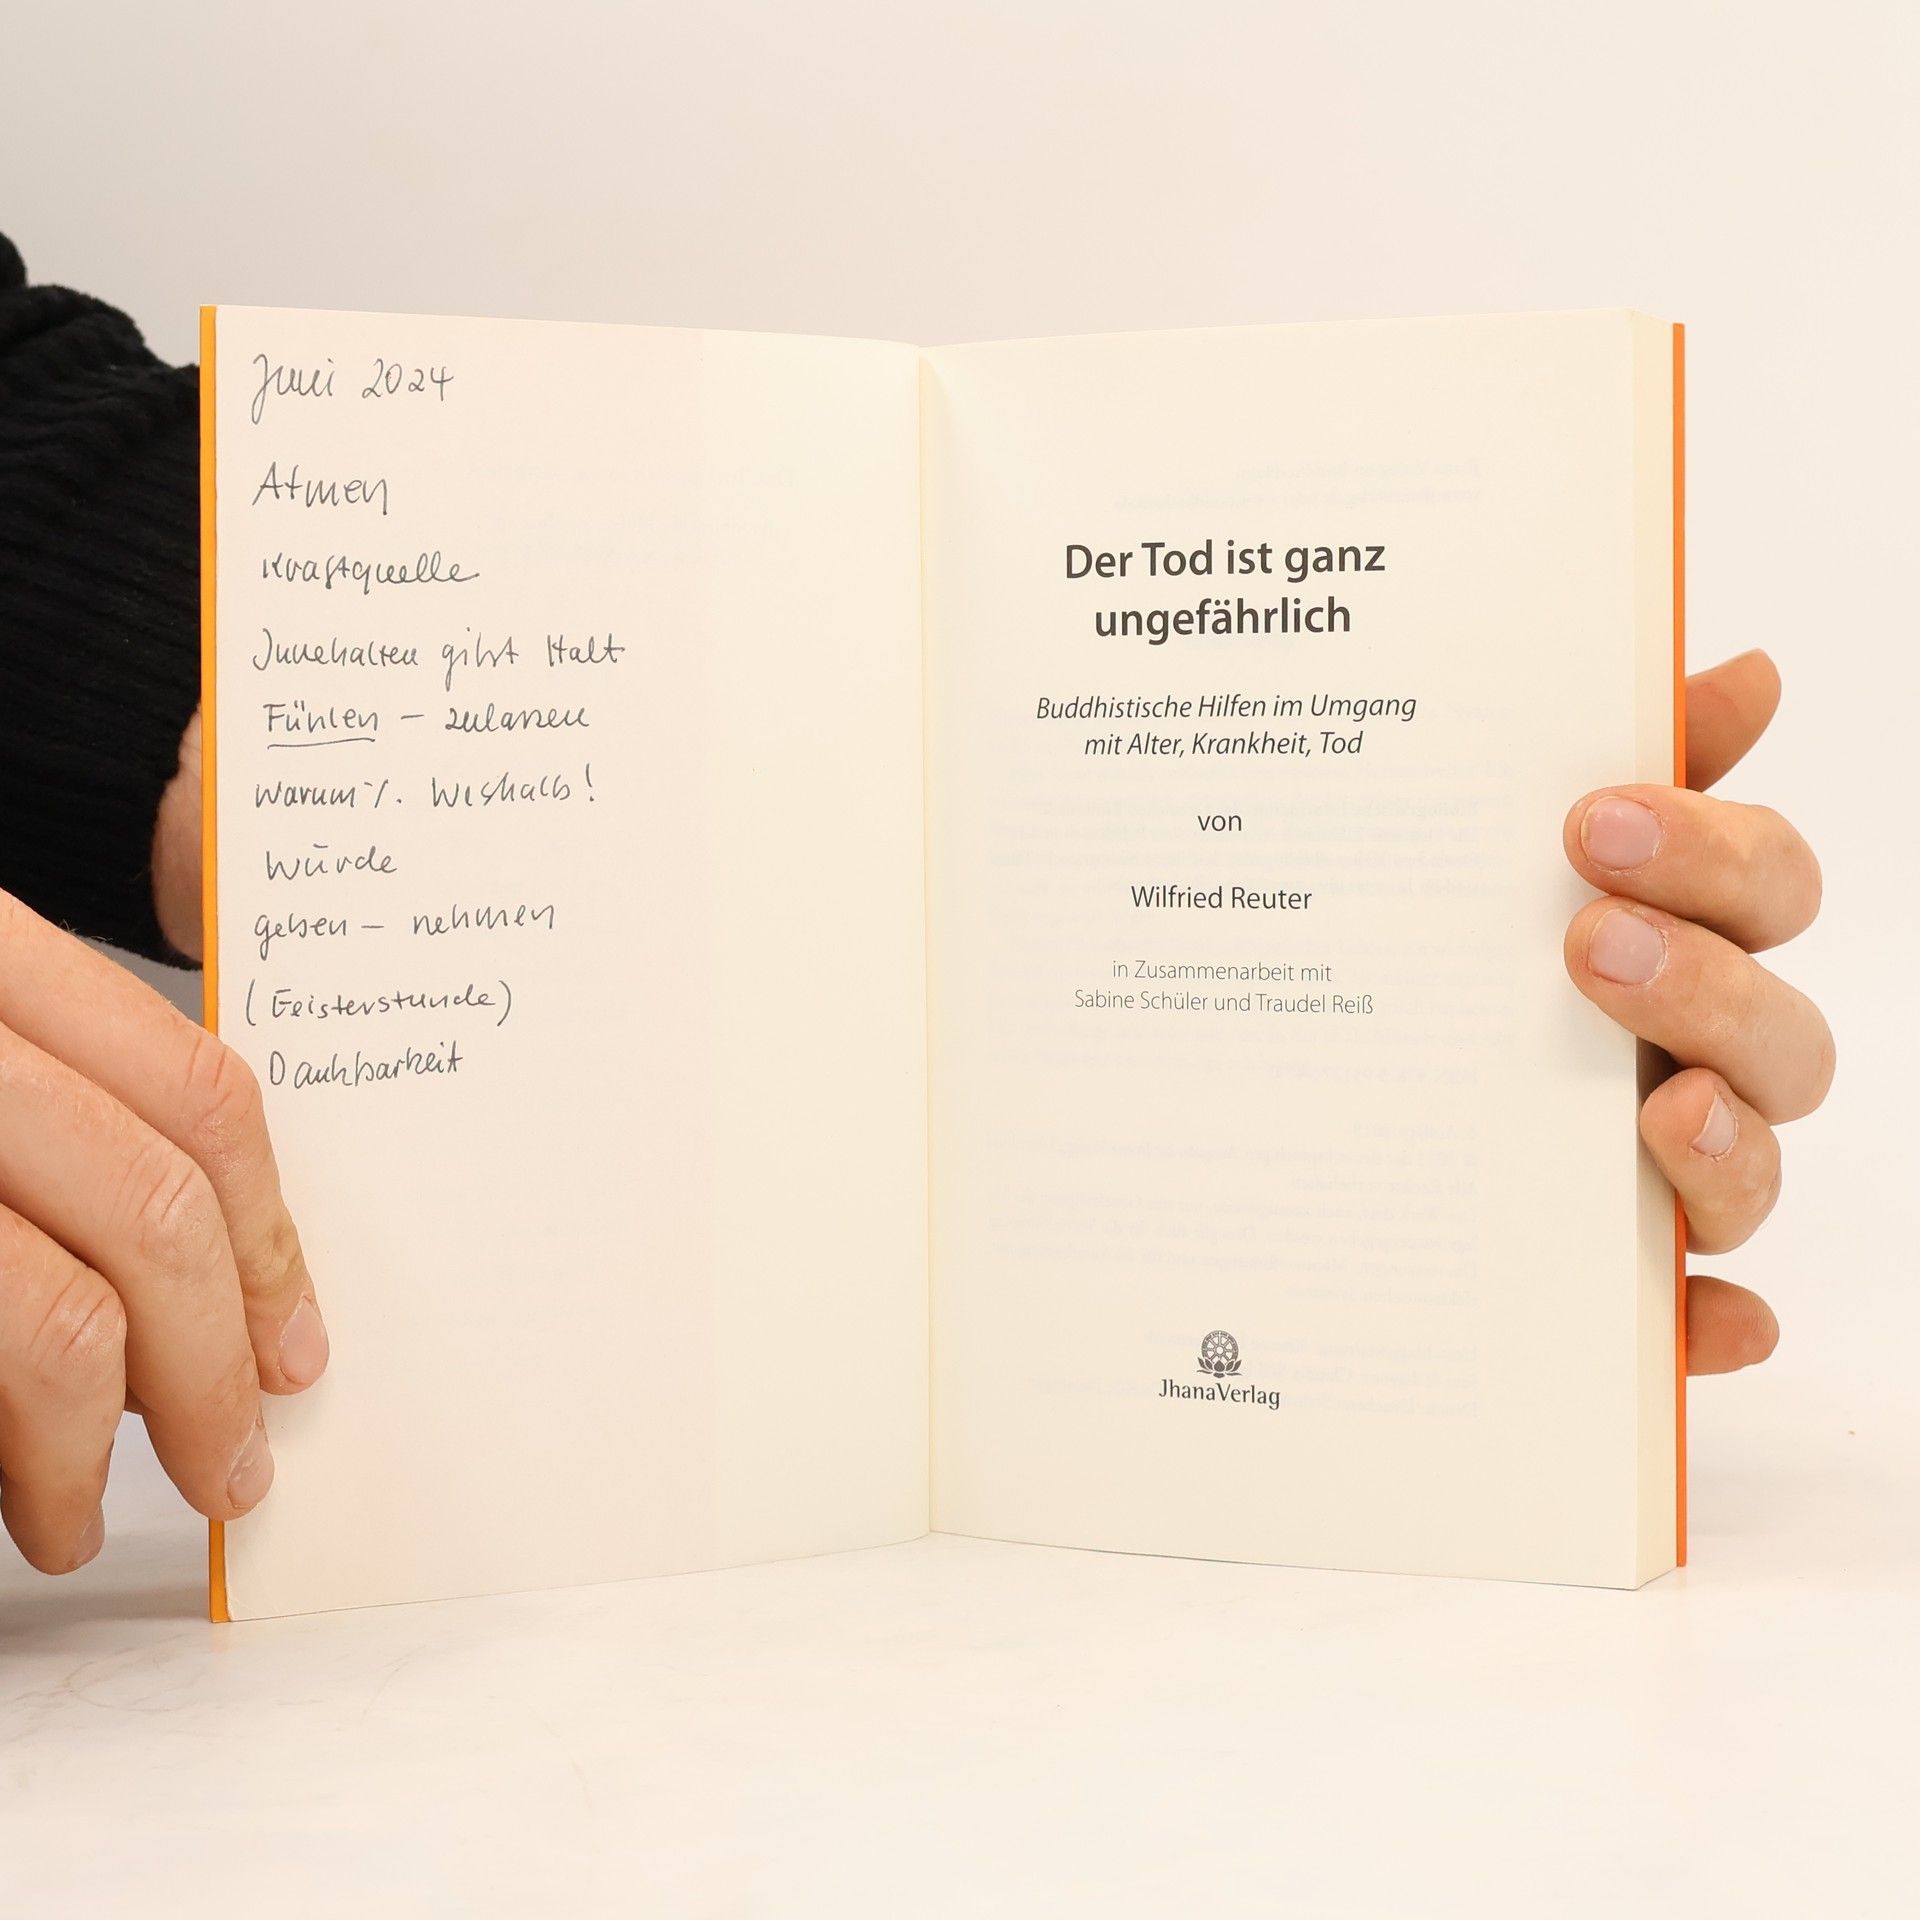 Juni 2024
Atmen
Kraftquelle
Innehalten gibt Halt
Fühlen – zulassen
warum ⁒. Weshalb!
Würde
geben – nehmen
(Geisterstunde)
Dankbarkeit
Der Tod ist ganz
ungefährlich
Buddhistische Hilfen im Umgang
mit Alter, Krankheit, Tod
von
Wilfried Reuter
in Zusammenarbeit mit
Sabine Schüler und Traudel Reiß
JhanaVerlag